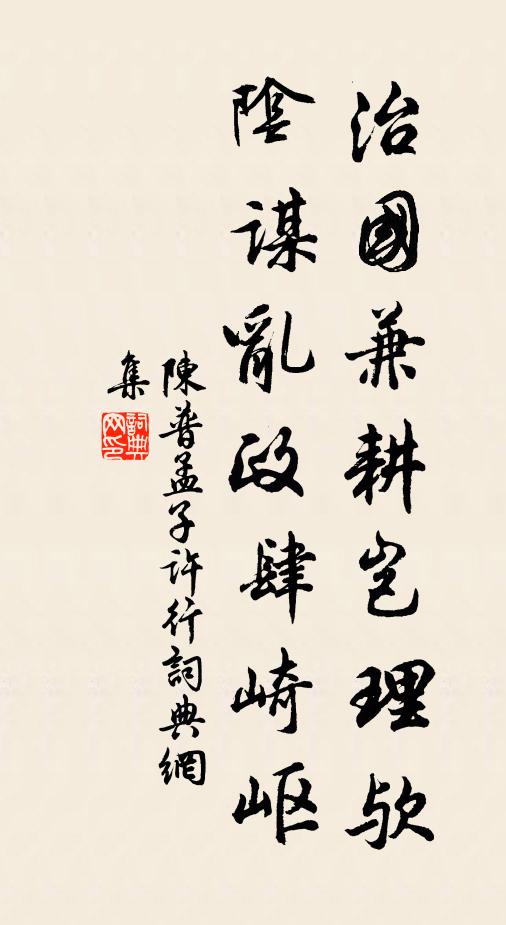 治國兼耕豈理欤
陰謀亂政肆崎岖
陳普孟子许行詞典網
集
詞典
网印